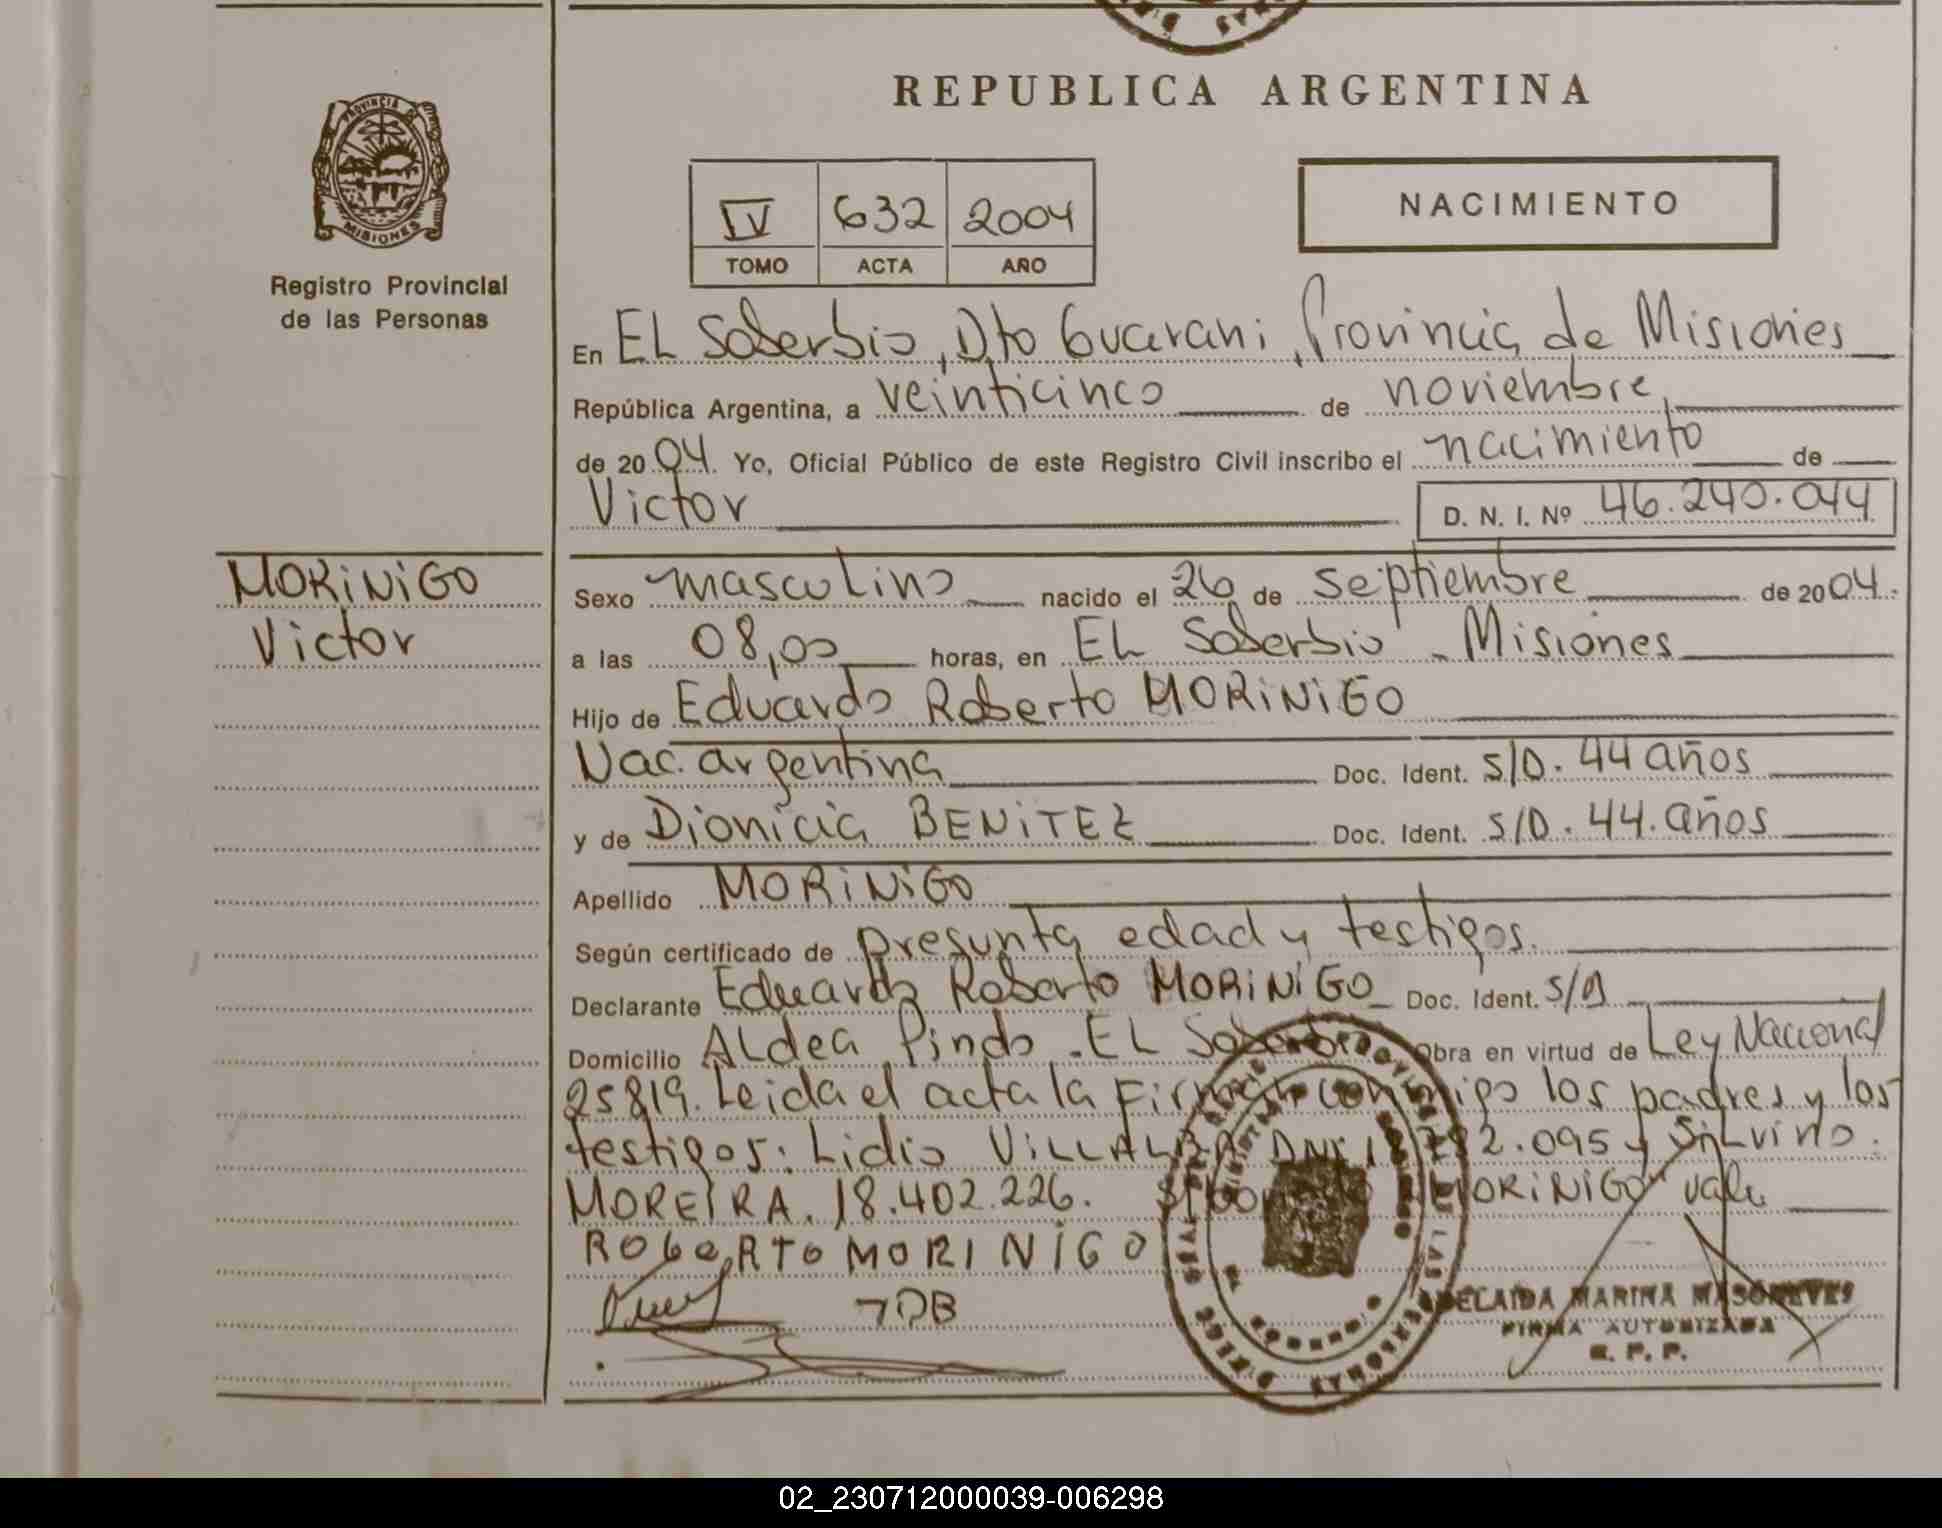 REPUBLICA ARGENTINA
PROVINCIA DE
MISIONES
Registro Provincial
de las Personas
IV 632 2004
TOMO ACTA AÑO
NACIMIENTO
En EL Soberbio, Dto Guarani, Provincia de Misiones
República Argentina, a veinticinco de noviembre,
de 2004. Yo, Oficial Público de este Registro Civil inscribo el nacimiento de
Victor D. N. I. Nº 46.240.044
MORiNiGO
Victor
Sexo masculino nacido el 26 de septiembre de 2004.
a las 08,00 horas, en EL Soberbio - Misiones
Hijo de Eduardo Roberto MORiNiGO
Nac. argentina Doc. Ident. S/D. 44 años
y de Dionicia BENiTEZ Doc. Ident. S/D. 44. años
Apellido MORiNiGO
Según certificado de presunta edad y testigos.
Declarante Eduardo Roberto MORiNiGO Doc. Ident. S/D
Domicilio ALdea Pindo - EL Soberbio Obra en virtud de Ley Nacional
25819. Leida el acta la Firman conmigo los padres y los
testigos: Lidio ViLLALBA DNI 092.095 y SiLvino.
MOREiRA. 18.402.226. MORiNiGO" vale
ROBERTO MORINIGO
7DB
ADELAIDA MARINA
FIRMA AUTORIZADA
R. P. P.
02_230712000039-006298